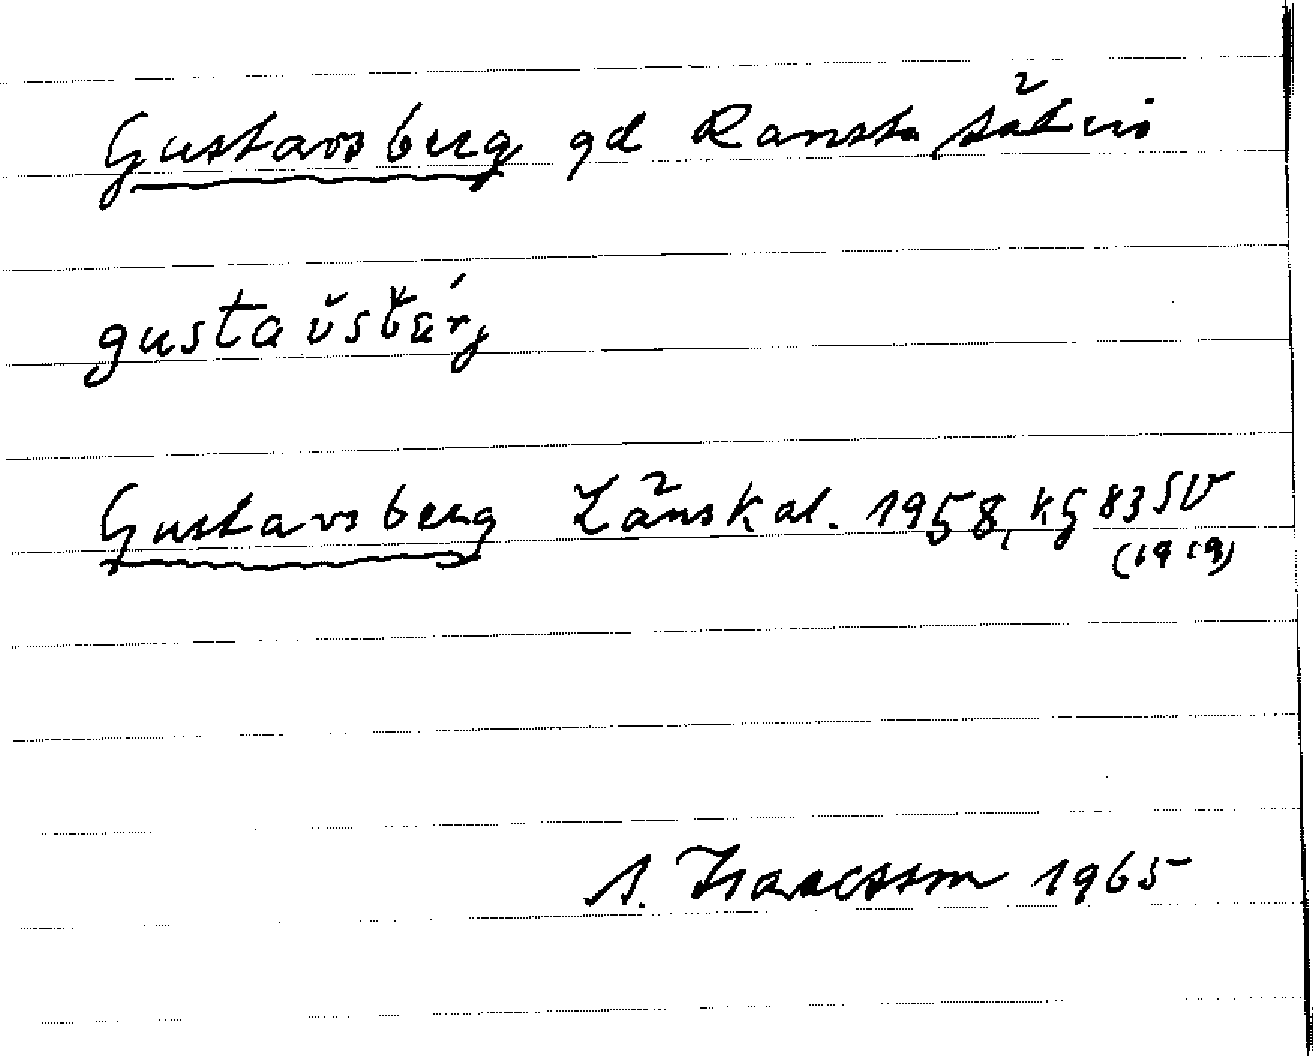 Gustavsberg gd Ransta säteri
gustavsbärj
Gustavsberg Länskal. 1958, kg 83 SV
(1919)
S. Isaacsson 1965